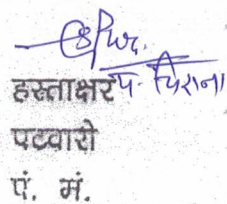 हस्ताक्षर प. पिराना
पटवारी
पं. मं.